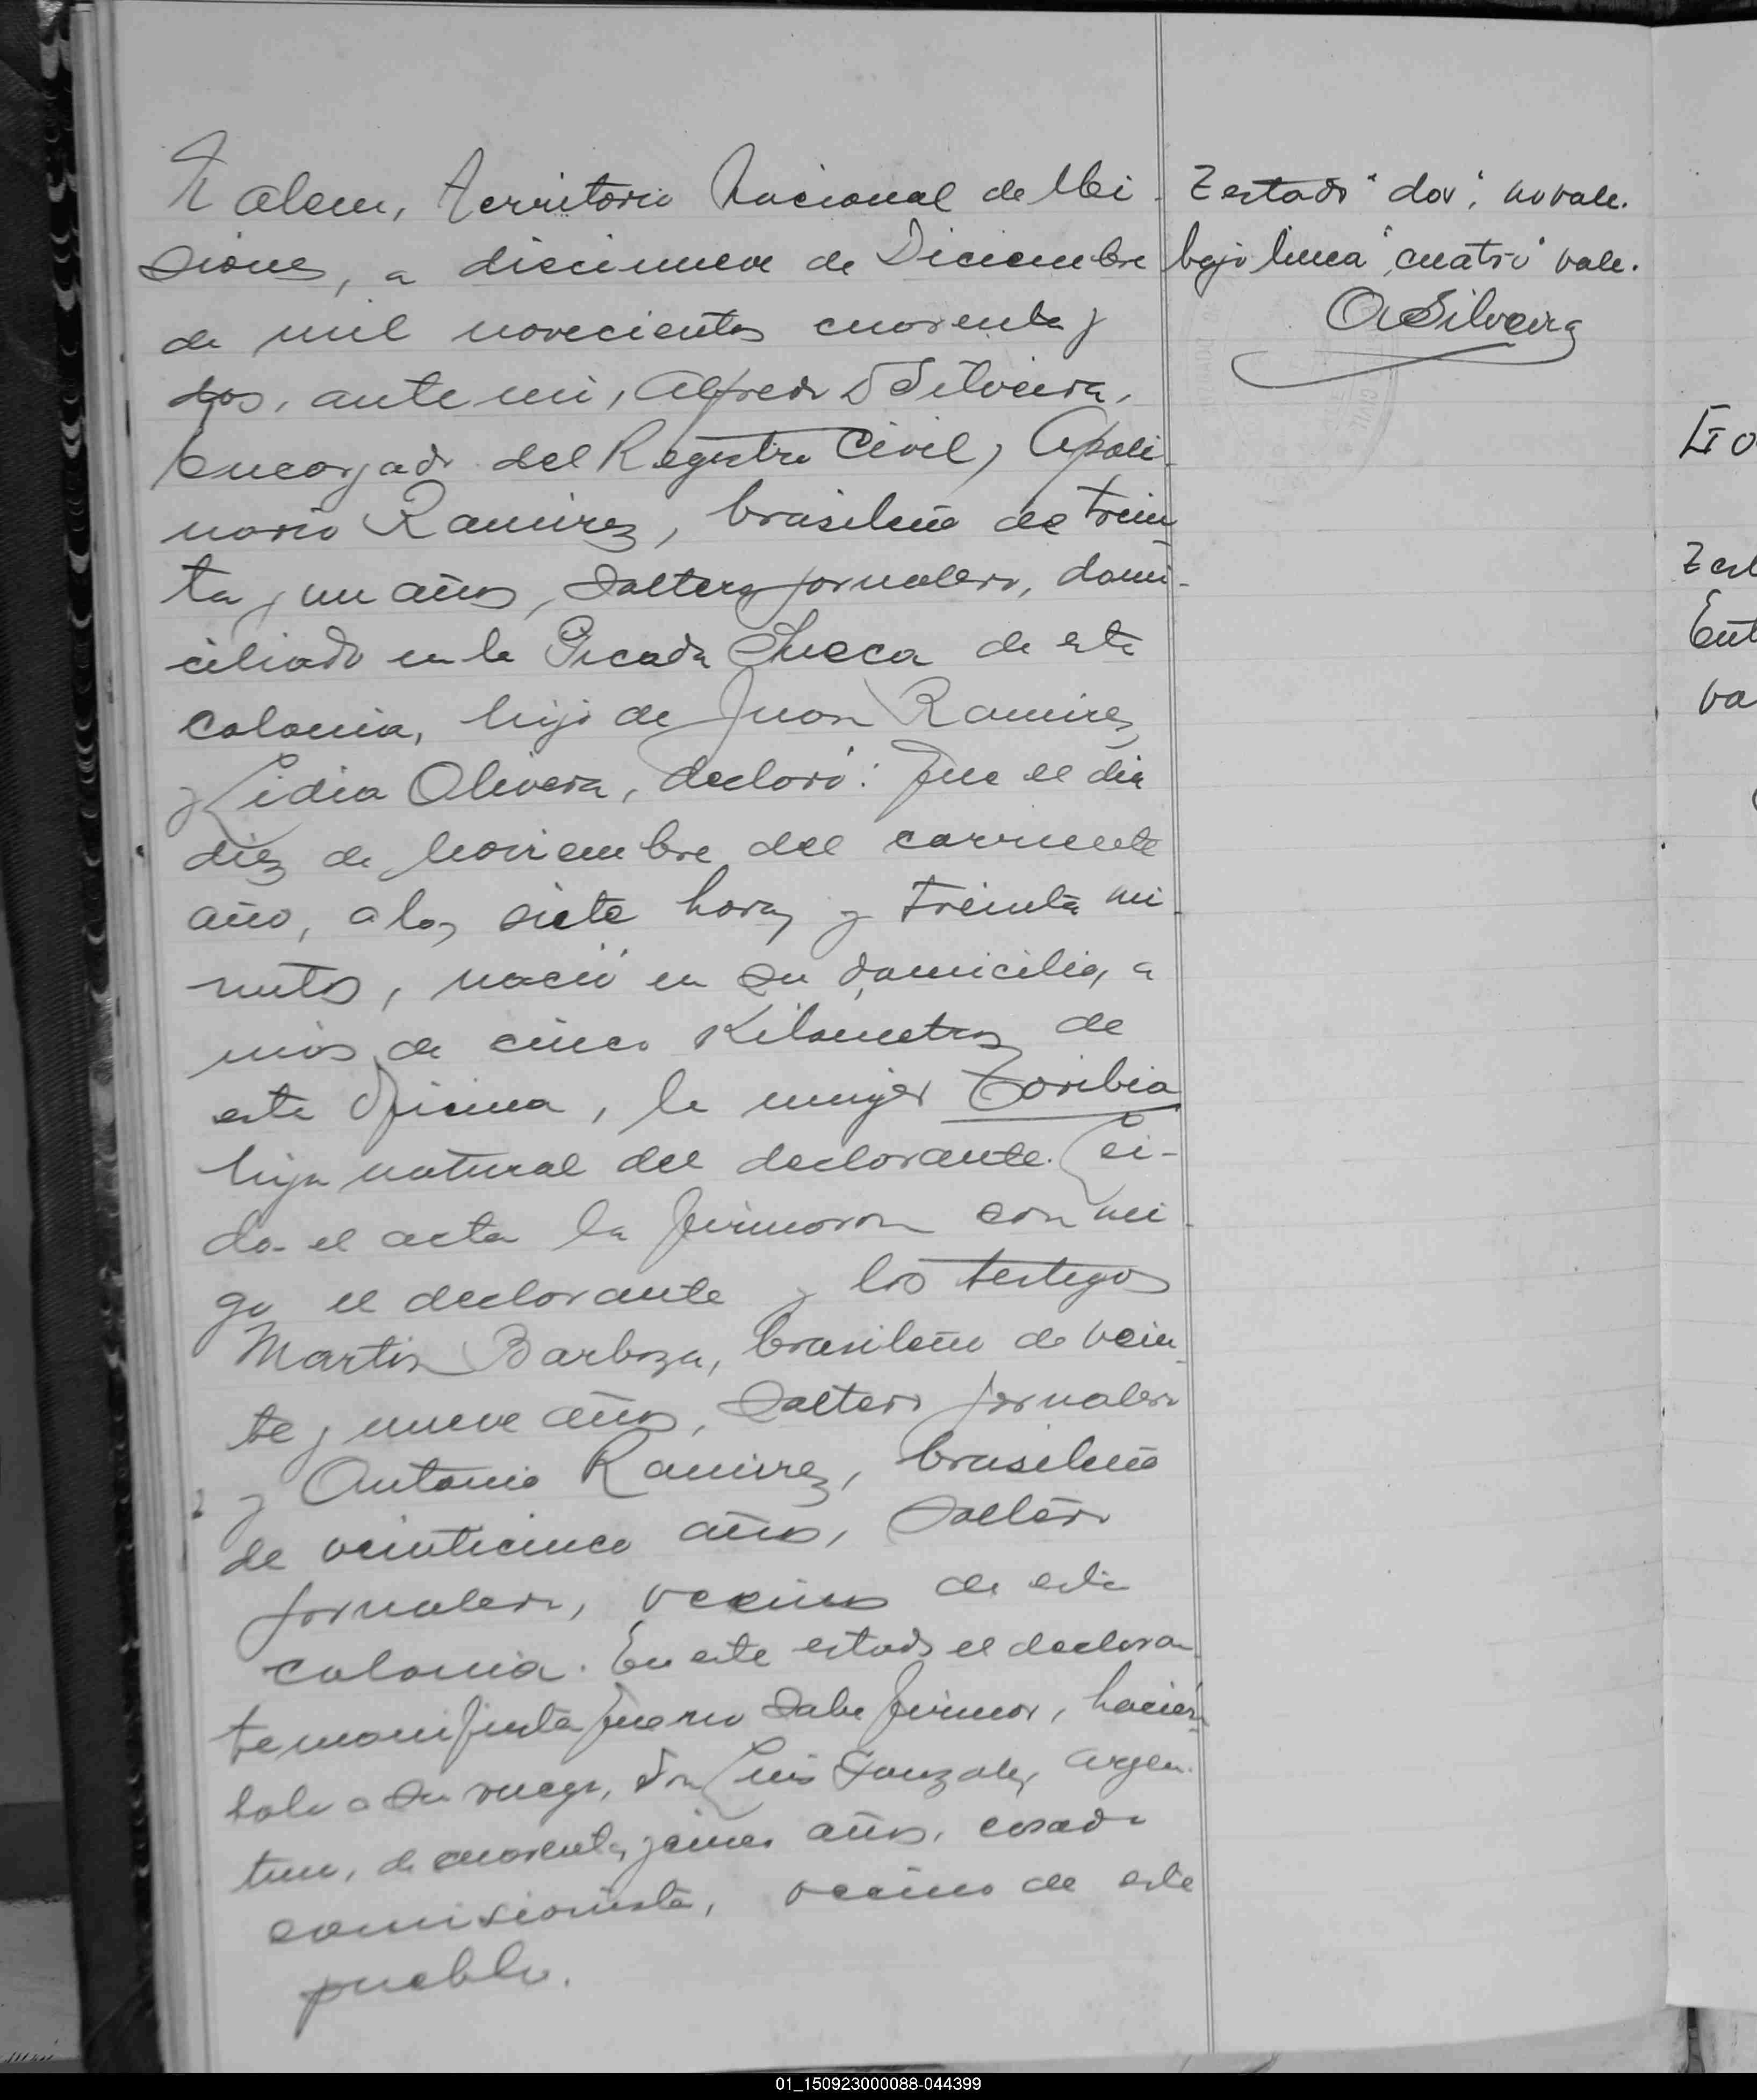 En Alem, Territorio Nacional de Mi-
siones, a diecinueve de Diciembre
de mil novecientos cuarenta y
dos, ante mi, Alfredo D Silveira,
Encargado del Registro Civil, Apoli-
nario Ramirez, brasileño de trein-
ta y un años, soltero jornalero, domi-
ciliado en la Picada Sueca de esta
colonia, hijo de Juan Ramirez
y Lidia Olivera, declaró: Que el dia
diez de Noviembre del corriente
año, a las siete horas y treinta mi-
nutos, nació en su domicilio, a
mas de cinco Kilometros de
esta Oficina, la mujer Toribia
hija natural del declarante. Lei-
da el acta la firmaron conmi-
go el declarante y los testigos
Martin Barboza, brasileño de vein-
te y nueve años, soltero jornalero
y Antonio Ramirez, brasileño
de veinticinco años, soltero
jornalero, vecinos de esta
colonia. En este estado el declaran-
te manifiesta que no sabe firmar, hacien-
dolo a su ruego, don Luis Gonzalez, argen-
tino, de cuarenta y cinco años, casado
comisionista, vecino de este
pueblo.
Testado "dos", no vale.
bajo linea "cuatro" vale.
ADSilveira
Ent
va
01_150923000088-044399